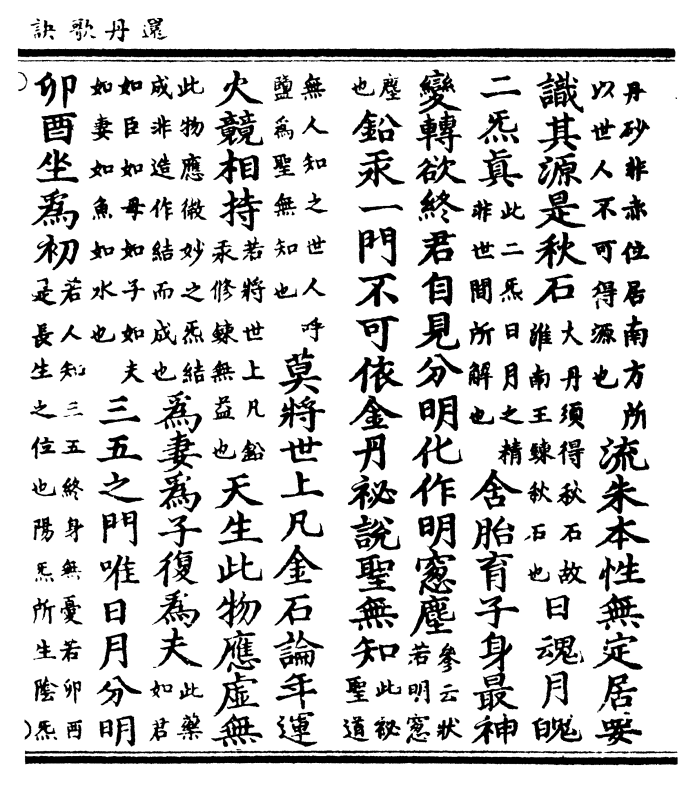 還丹歌訣
丹砂非赤位居南方所以世人不可得源也流朱本性無定居要
識其源是秋石大丹須得秋石故淮南王鍊秋石也日魂月魄
二炁眞此二炁日月之精非世間所解也含胎育子身最神
變轉欲終君自見分明化作明窻塵叅云狀若明窻
塵也鉛汞一門不可依金丹祕說聖無知此祕聖道
無人知之世人呼鹽爲聖無知也莫將世上凡金石論年運
火競相持若將世上凡鉛汞修鍊無益也天生此物應虛無
此物應微妙之炁結成非造作結而成也爲妻爲子復爲夫此藥如君
如臣如母如子如夫如妻如魚如水也三五之門唯日月分明
卯酉坐爲初若人知三五終身無憂若卯酉是長生之位也陽炁所生陰炁